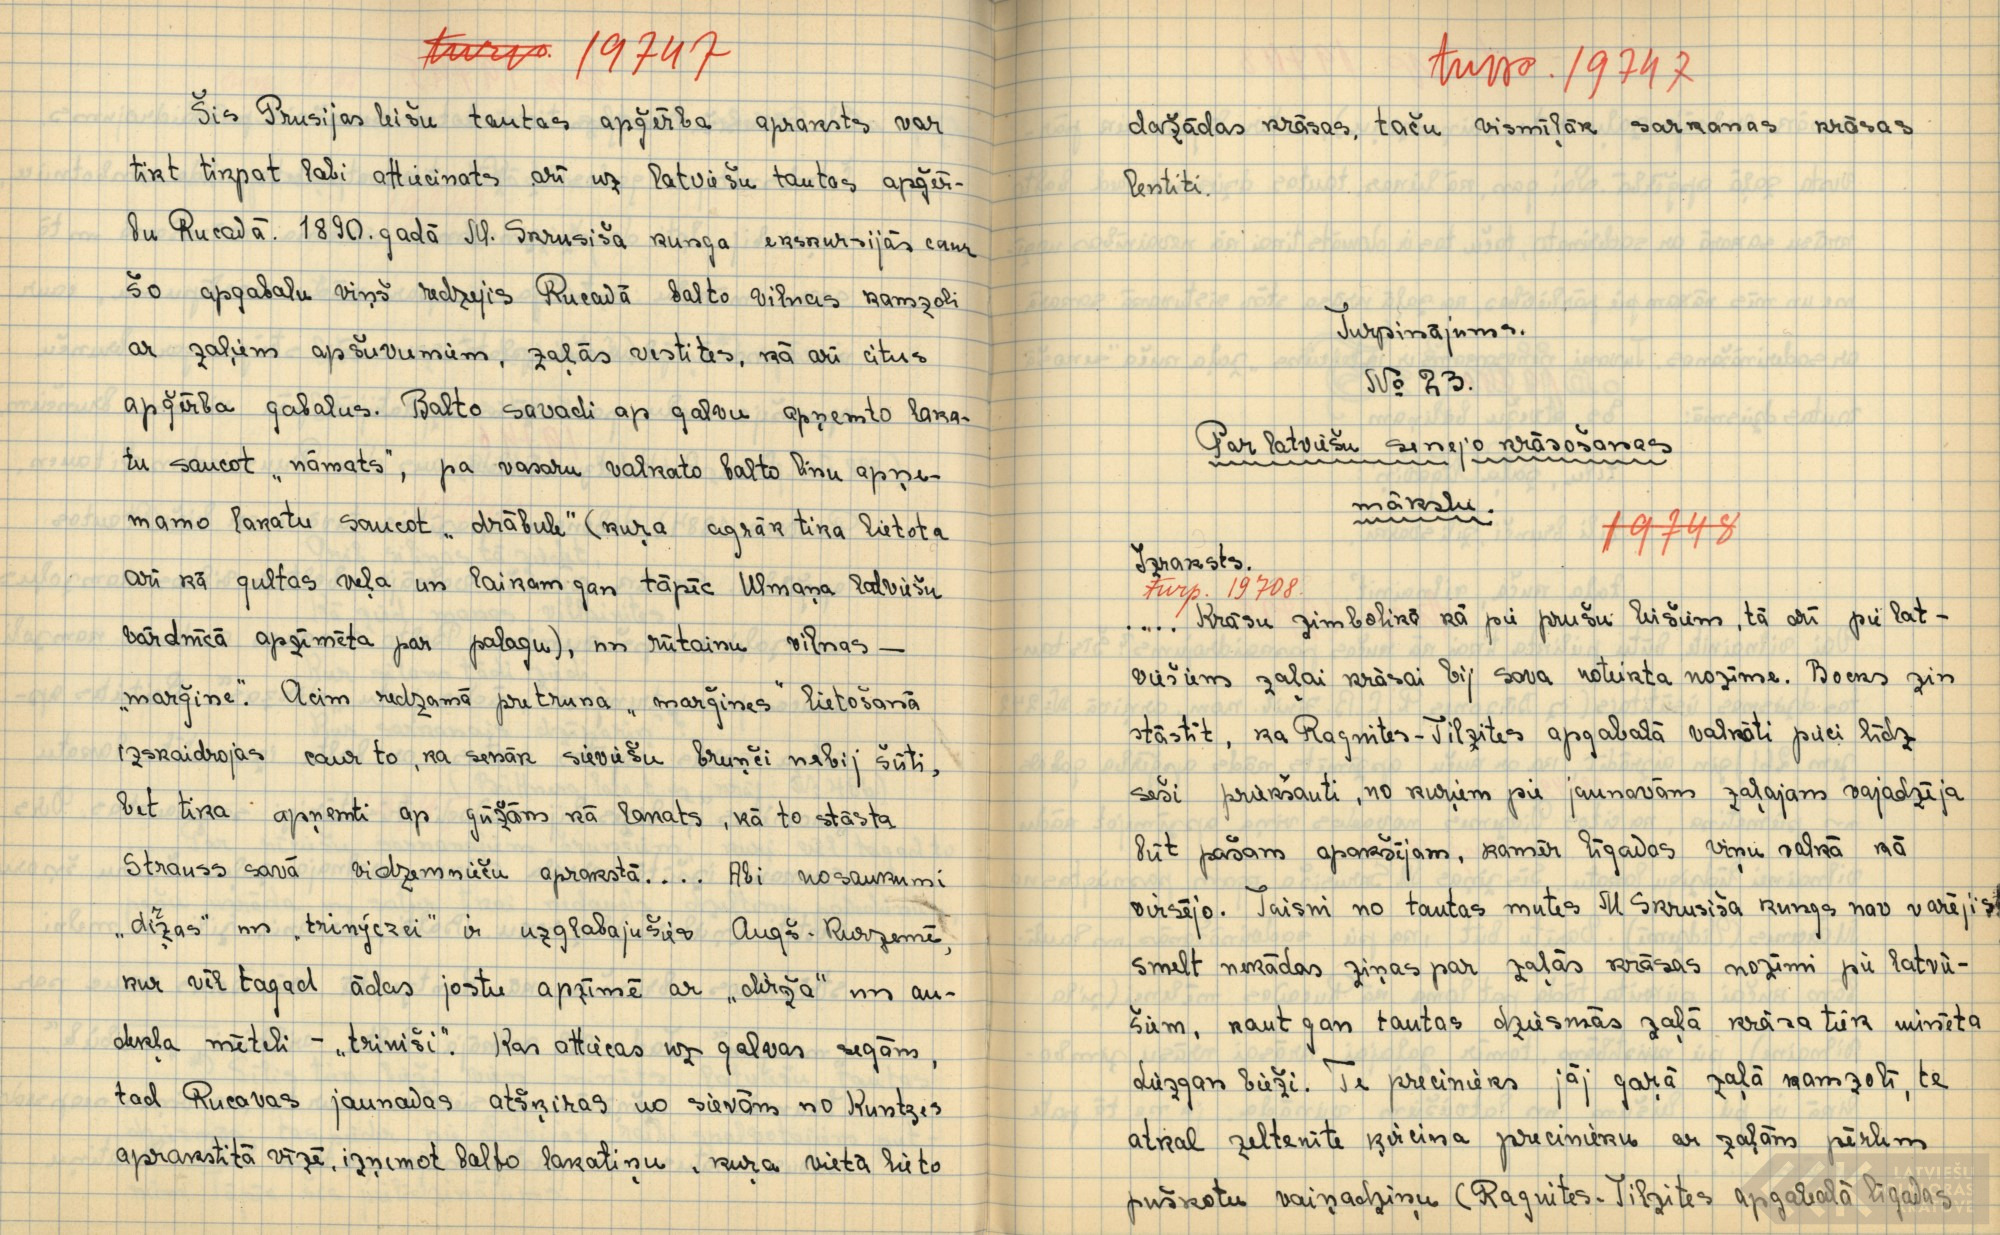 turp. 19747
Šis Prusijas leišu tautas apģērba apraksts var
tikt tikpat labi attiecinats arī uz latviešu tautas apģēr-
bu Rucavā. 1890. gadā M. Skrusiša kunga ekskursijās caur
šo apgabalu viņš redzejis Rucavā balto vilnas kamzoli
ar zaļiem apšuvumiem, zaļās vestites, kā arī citus
apģērba gabalus. Balto savadi ap galvu apņemto laka-
tu saucot „nāmats", pa vasaru valkato balto linu apņe-
mamo lakatu saucot „drābule" (kuŗa agrāk tika lietota
arī kā gultas veļa un laikam gan tāpēc Ulmaņa latviešu
vārdnīcā apzīmēta par palagu), un rūtainu vilnas —
„marģine". Acim redzamā pretruna „marģines" lietošanā
izskaidrojas caur to, ka senāk sieviešu bruņči nebij šūti,
bet tika apņemti ap gūžām kā lakats, kā to stāsta
Strauss savā vidzemnieču aprakstā.... Abi nosaukumi
„diržas" un „trinýczei" ir uzglabajušies Augš-Kurzemē,
kur vēl tagad ādas jostu apzīmē ar „dirža" un au-
dekļa mēteli – „triniši". Kas attiecas uz galvas segām,
tad Rucavas jaunavas atšķiras no sievām no Kuntzes
aprakstitā vīzē, izņemot balto lakatiņu, kuŗa vietā lieto
turp. 19747
dažādas krāsas, taču vismīļāk sarkanas krāsas
lentiti.
Turpinājums.
№ 23.
Par latviešu senejo krāsošanas
mākslu.
19748
Izraksts.
turp. 19708.
.... Krāsu zimbolikā kā pie prušu leišiem, tā arī pie lat-
viešiem zaļai krāsai bij sava noteikta nozīme. Bocks zin
stāstīt, ka Ragnites-Tilzites apgabalā valkāti pieci līdz
seši priekšauti, no kuŗiem pie jaunavām zaļajam vajadzēja
būt pašam apakšējam, kamēr līgavas viņu valkā kā
virsējo. Taisni no tautas mutes M Skrusiša kungs nav varējis
smelt nekādas ziņas par zaļās krāsas nozīmi pie latvie-
šiem, kaut gan tautas dziesmās zaļā krāsa tiek minēta
diezgan bieži. Te precinieks jāj gaŗā zaļā kamzolī, te
atkal zeltenīte kvicina precinieku ar zaļām pērlēm
puškotu vaiņadziņu (Ragnites-Tilzites apgabalā līgavas
LATVIEŠU
FOLKLORAS
KRĀTUVE